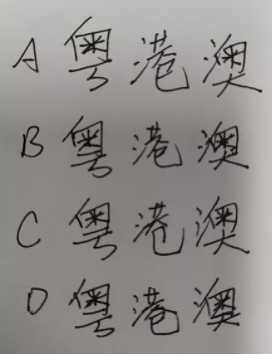 A 粤港澳
B 粤港澳
C 粤港澳
D 粤港澳